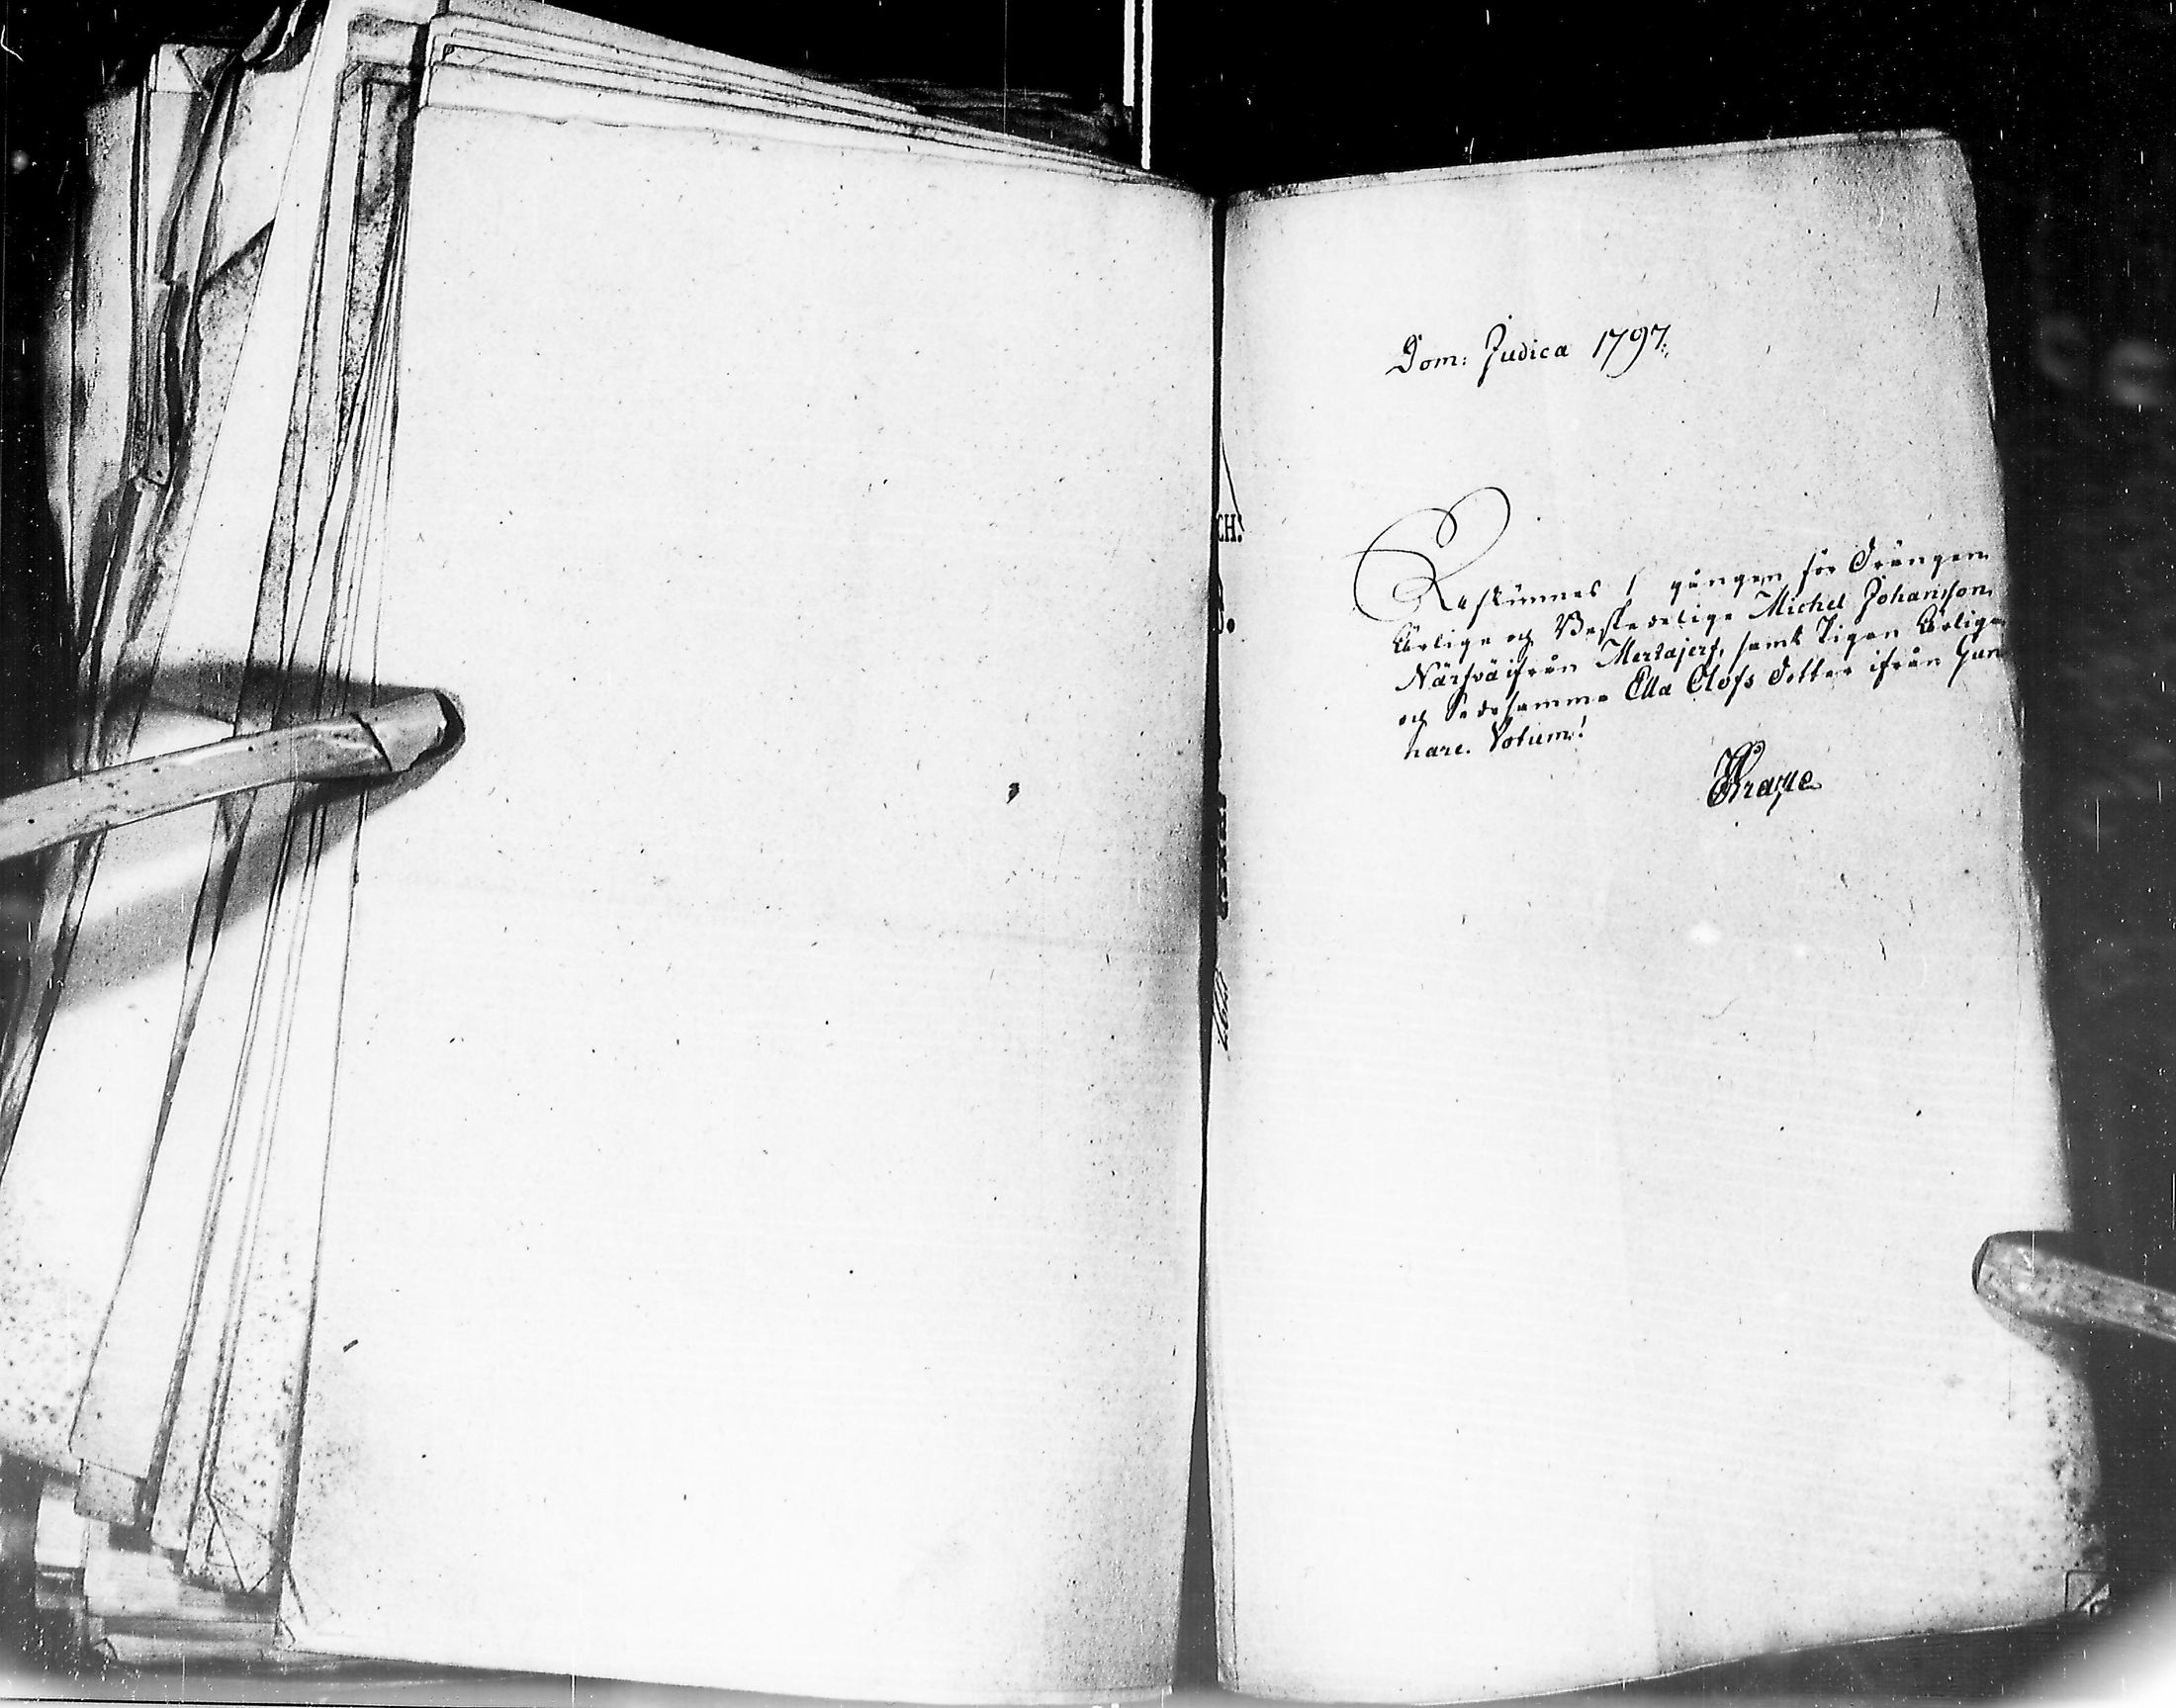 Dom: Judica 1797.
CH:
Aflÿsnes 1 gången för Drängen
Ärlige och Beskedelige Michel Johansson
Närfvä ifrån Mertajerf, samt Pigan Ärliga
och Sedesamma Ella Olofs Dotter ifrån Gun
nare. Votum!